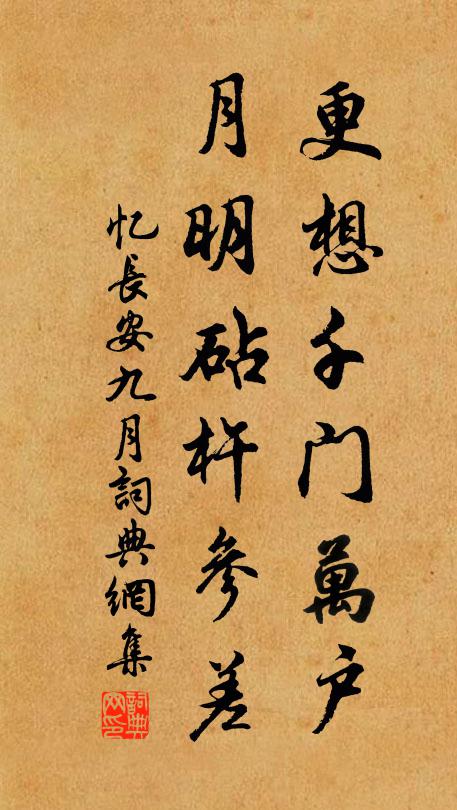 更想千门萬户
月明砧杵參差
忆長安九月詞典網集
詞典
网印